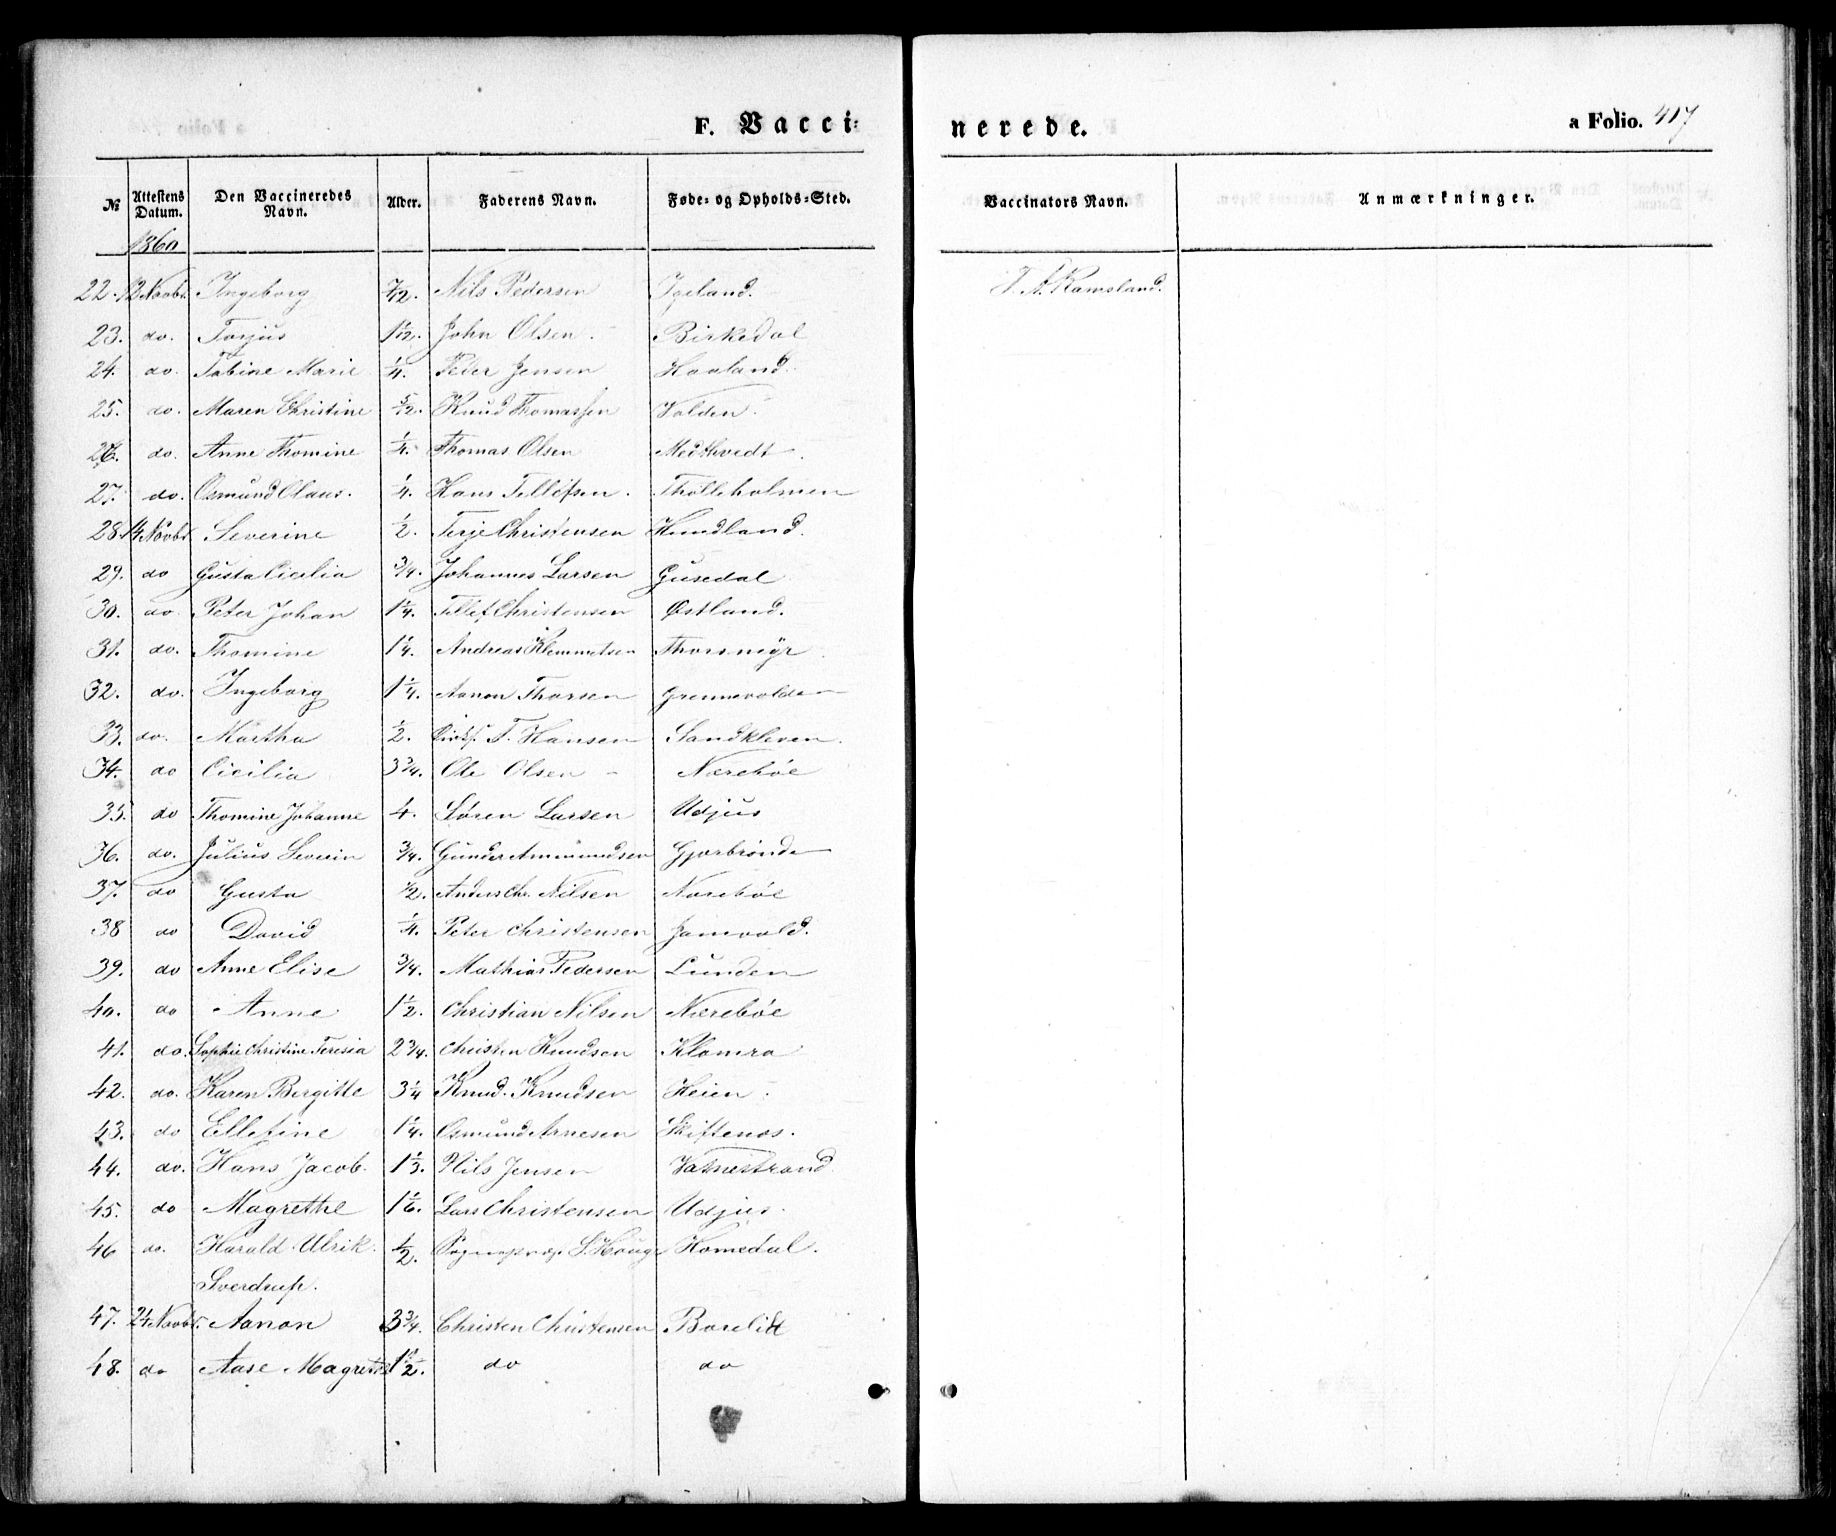 F. Vacci= nerede. a Folio. 417
№ Attestens Datum. Den Vaccineredes Navn. Alder. Faderens Navn. Føde- og Opholds-Sted. Vaccinators Navn. Anmærkninger.
1860
22. 12 Novbr. Ingeborg 7/12. Nils Pedersen Igeland. T. A. Ramsland.
23. do. Torjus 1 1/12. John Olsen Birkedal
24. do. Tobine Marie 1/4. Peder Jensen Haaland.
25. do. Maren Christine 5/12. Knud Thomassen Volden.
26. do. Anne Thomine 1/4. Thomas Olsen Medtvedt.
27. do. Osmund Olaus. 1/4. Hans Tellefsen. Tholleholmen
28. 14 Novbr. Severine 1/2. Terje Christensen Hundland.
29. do Gusta Cicilia 3/4. Johannes Larsen Gusedal
30. do. Peter Johan 1 1/4. Tellef Christensen Østland.
31. do. Thomine 1 1/4. Andreas Klemmetsen Thorsmyr.
32. do. Ingeborg 1 1/4. Aanon Thorsen Grennevolden
33. do. Martha 1/2. T. Hansen Sandkleven.
34. do Cicilia 3 3/4. Ole Olsen Nærebøe
35. do Thomine Johanne 4. Søren Larsen Udjus
36. do. Julius Severin 3/4. Gunder Ammundsen Gjærbrønden
37. do Gusta 1/2. Anders Chr. Nilsen Nærebøe
38 do David 1/4. Peter Christensen Jamvold.
39. do Anne Elise 3/4. Mathias Pedersen Lunden
40. do Anne 1 1/2. Christian Nilsen Nærebøe
41. do. Sophie Christine Teresia 2 3/4. Christen Knudsen Klomra
42. do. Karen Birgitte 3 1/4 Knud Knudsen Heien.
43. do Ellefine 1 1/4. Osmund Arnesen Skiftenes.
44. do. Hans Jacob. 1 1/3. Nils Jensen Vatnestrand
45. do Magrethe 1 1/6. Lars Christensen Udjus.
46 do. Harald Ulrik 1/2. Sognepræst S. Houg Homedal.
Sverdrup.
47. 24 Novbr. Aanon 3 3/4. Christen Christensen Borelid
48. do Aase Magrethe 1 1/2. do do